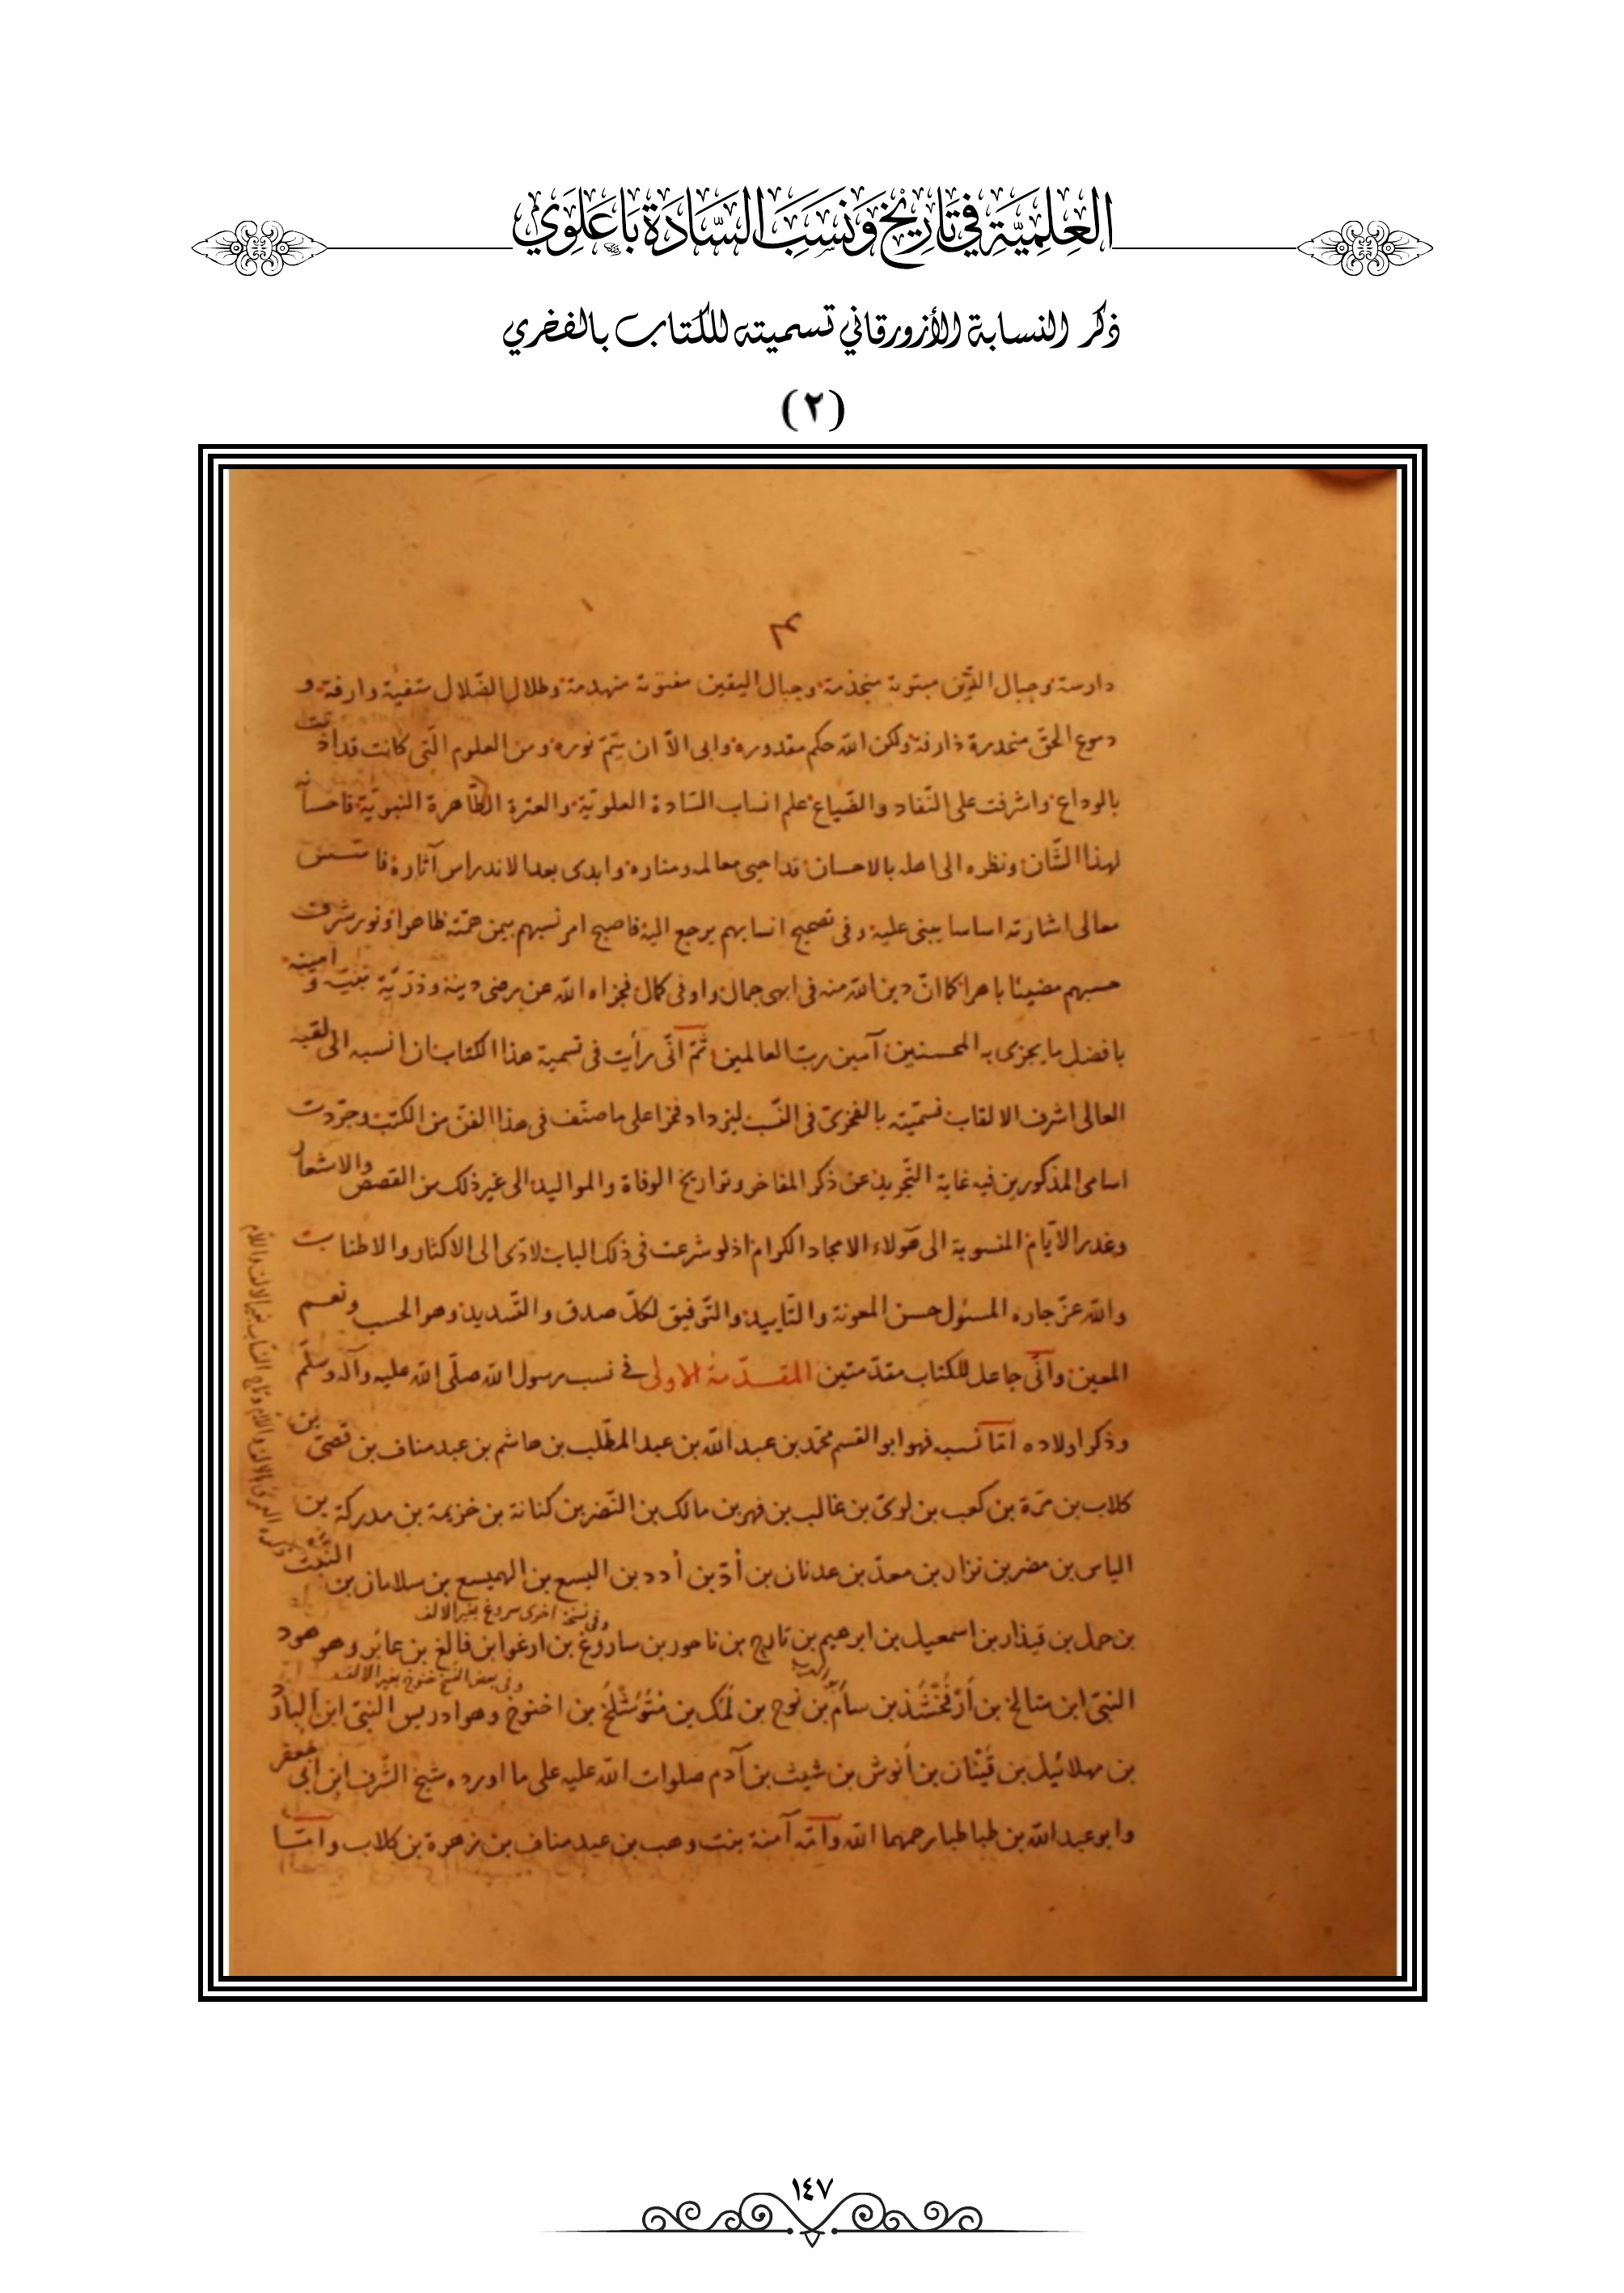 العِلمِيَّة في تَارِيخ وَنَسَبَ السَّادَة بَا عَلَوِي
ذكر النسابة الأزورقاني تسميته للكتاب بالفخري
(٢)
دارسة وحبال الدّين مبتوتة منجذمة وجبال اليقين منهدمة وظلال الضّلال متفيّة وارفة و
دموع الحقّ منحدرة ذارفة ولكن الله حكم مقدوره وابى الّا ان يتمّ نوره ومن العلوم الّتي كانت قد اذنت
بالوداع واشرفت على النّفاد والضّياع علم انساب السّادة العلويّة والعترة الطّاهرة النبويّة فاحسانه
لهذا الشّان ونظره الى اهله بالاحسان قد احيى معالمه ومناره وابدى بعد الاندراس آثاره فاسّس
معالى اشارته اساسا يبنى عليه وفى تصحيح انسابهم يرجع اليه فاصبح امر نسبهم بيمن همّته ظاهرا ونور شرف
حسبهم مضيئا باهرا كما انّ دين الله منه فى ابهى جمال واوفى كمال فجزاه الله عن مرضى دينه وذرّيّة نبيّه وامينه
بافضل ما يجزى به المحسنين آمين ربّ العالمين ثمّ انّى رأيت فى تسمية هذا الكتاب ان انسبه الى لقبه
العالى اشرف الالقاب فسمّيته بالفخرىّ فى النّسب ليزداد فخرا على ما صنّف فى هذا الفنّ من الكتب وجرّدت
اسامى المذكورين فيه غاية التّجريد عن ذكر المفاخر وتواريخ الوفاة والمواليد الى غير ذلك من القصص والاشعار
وغدر الايّام المنسوبة الى هؤلاء الامجاد الكرام اذ لو شرعت فى ذلك الباب لادّى الى الاكثار والاطناب
والله عزّ جاره المسئول حسن المعونة والتّاييد والتّوفيق لكلّ صدق والتّسديد وهو الحسب ونعم
المعين وانّى جاعل للكتاب مقدّمتين المقدّمة الاولى فى نسب رسول الله صلّى الله عليه وآله وسلّم
وذكر اولاده امّا نسبه فهو ابو القسم محمّد بن عبد الله بن عبد المطّلب بن هاشم بن عبد مناف بن قصىّ بن
كلاب بن مرّة بن كعب بن لوىّ بن غالب بن فهر بن مالك بن النّضر بن كنانة بن خزيمة بن مدركة بن
الياس بن مضر بن نزار بن معدّ بن عدنان بن أدّ بن أدد بن اليسع بن الهميسع بن سلامان بن النّبت
وفى نسخة اخرى سروغ بغير الالف
بن حمل بن قيذار بن اسمعيل بن ابرهيم بن تارح بن ناحور بن ساروغ بن ارغوا بن فالغ بن عابر وهو هود
وفى بعض النّسخ خنوخ بغير الالف
النبىّ ابن شالخ بن أرفخشذ بن سام بن نوح بن لمك بن متوشلخ بن اخنوخ وهو ادريس النبىّ ابن اليارد
بن مهلائيل بن قينان بن أنوش بن شيث بن آدم صلوات الله عليه على ما اورده شيخ الشّرف ابن أبى جعفر
وابو عبد الله بن طباطبا رحمهما الله وامّه آمنة بنت وهب بن عبد مناف بن زهرة بن كلاب وامّا
١٤٧